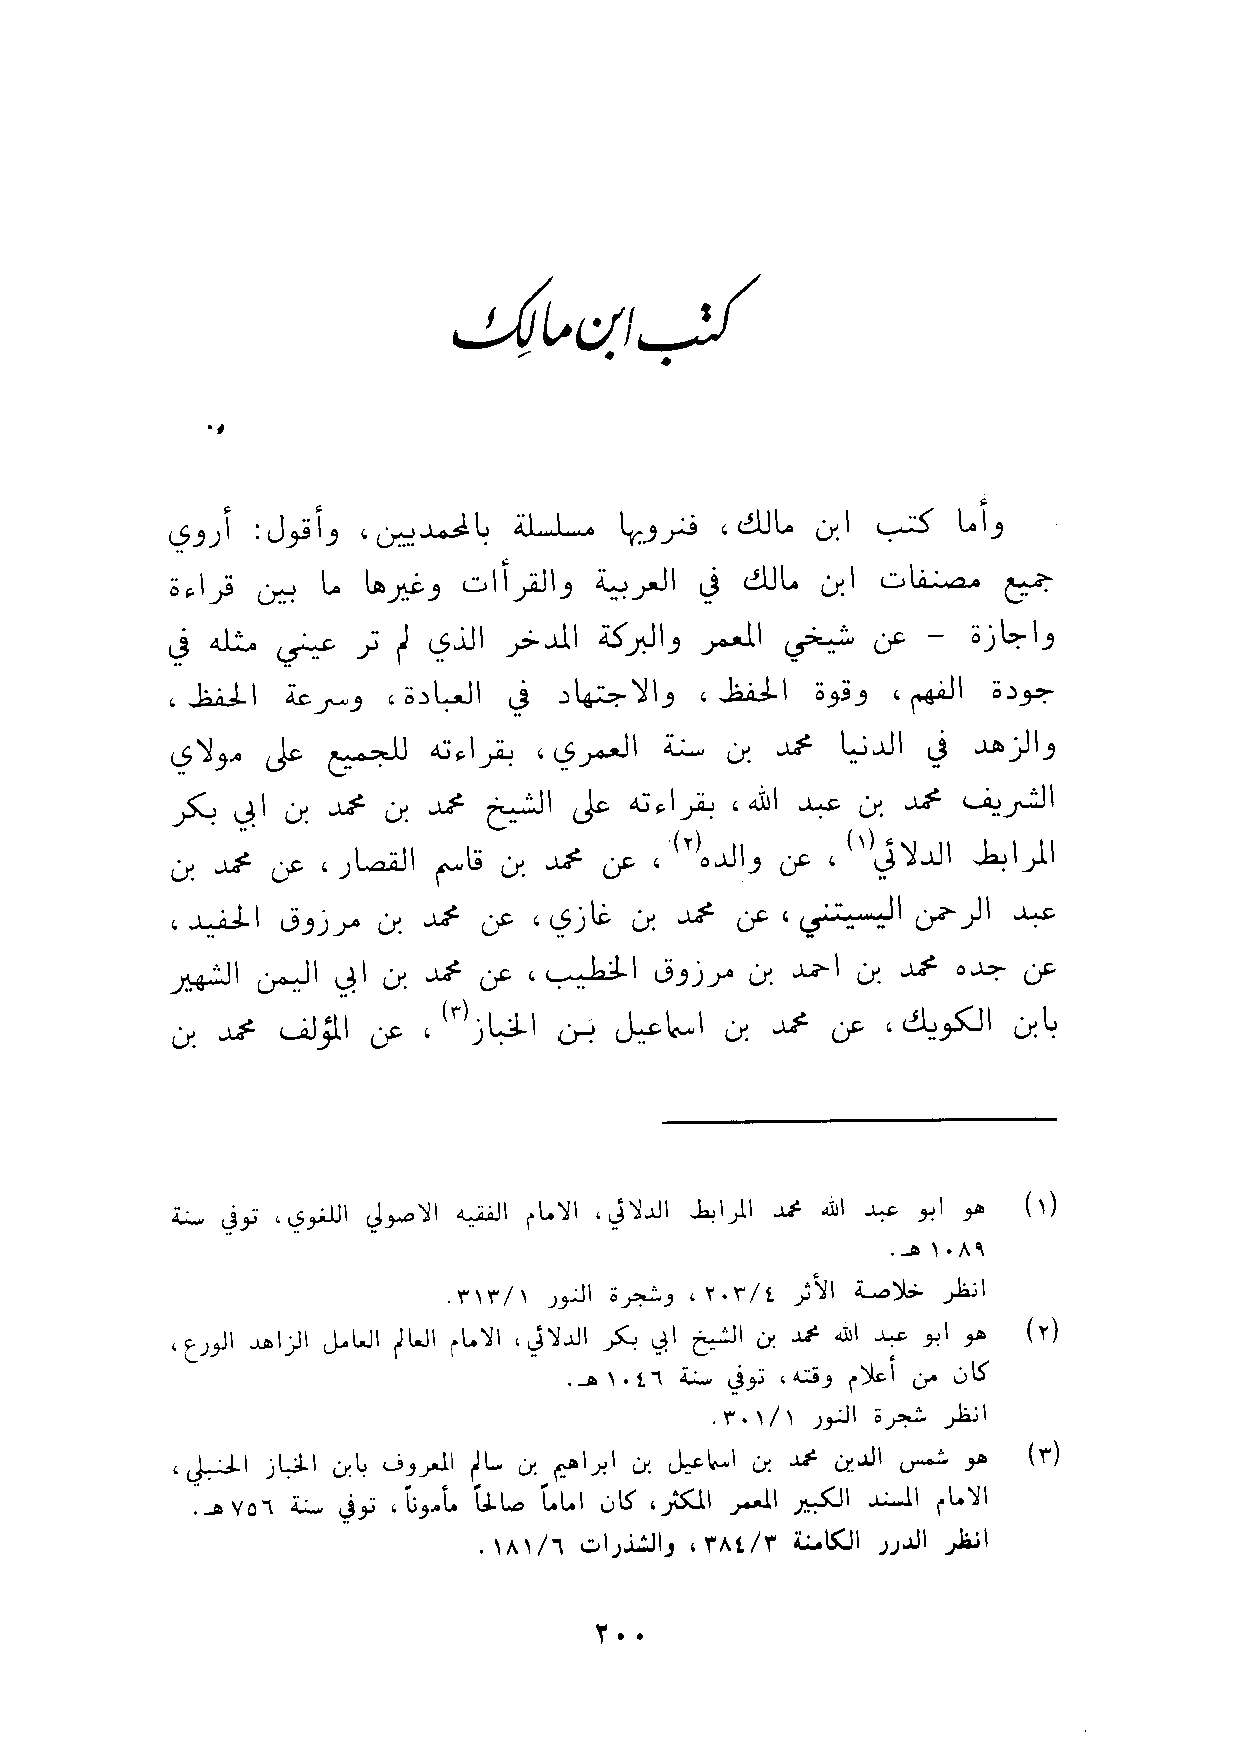 كتب ابن مالِك
وأما كتب ابن مالك، فنرويها مسلسلة بالمحمديين، وأقول: أروي
جميع مصنفات ابن مالك في العربية والقرأات وغيرها ما بين قراءة
واجازة – عن شيخي المعمر والبركة المدخر الذي لم تر عيني مثله في
جودة الفهم، وقوة الحفظ، والاجتهاد في العبادة، وسرعة الحفظ،
والزهد في الدنيا محمد بن سنة العمري، بقراءته للجميع على مولاي
الشريف محمد بن عبد الله، بقراءته على الشيخ محمد بن محمد بن ابي بكر
المرابط الدلائي(١)، عن والده(٢)، عن محمد بن قاسم القصار، عن محمد بن
عبد الرحمن اليسيتني، عن محمد بن غازي، عن محمد بن مرزوق الحفيد،
عن جده محمد بن احمد بن مرزوق الخطيب، عن محمد بن ابي اليمن الشهير
بابن الكويك، عن محمد بن اسماعيل بن الخباز(٣)، عن المؤلف محمد بن
(١) هو ابو عبد الله محمد المرابط الدلائي، الامام الفقيه الاصولي اللغوي، توفي سنة
١٠٨٩ هـ.
انظر خلاصة الأثر ٢٠٣/٤، وشجرة النور ٣١٣/١.
(٢) هو ابو عبد الله محمد بن الشيخ ابي بكر الدلائي، الامام العالم العامل الزاهد الورع،
كان من أعلام وقته، توفي سنة ١٠٤٦ هـ.
انظر شجرة النور ٣٠١/١.
(٣) هو شمس الدين محمد بن اسماعيل بن ابراهيم بن سالم المعروف بابن الخباز الحنبلي،
الامام المسند الكبير المعمر المكثر، كان اماماً صالحاً مأموناً، توفي سنة ٧٥٦ هـ.
انظر الدرر الكامنة ٣٨٤/٣، والشذرات ١٨١/٦.
٢٠٠